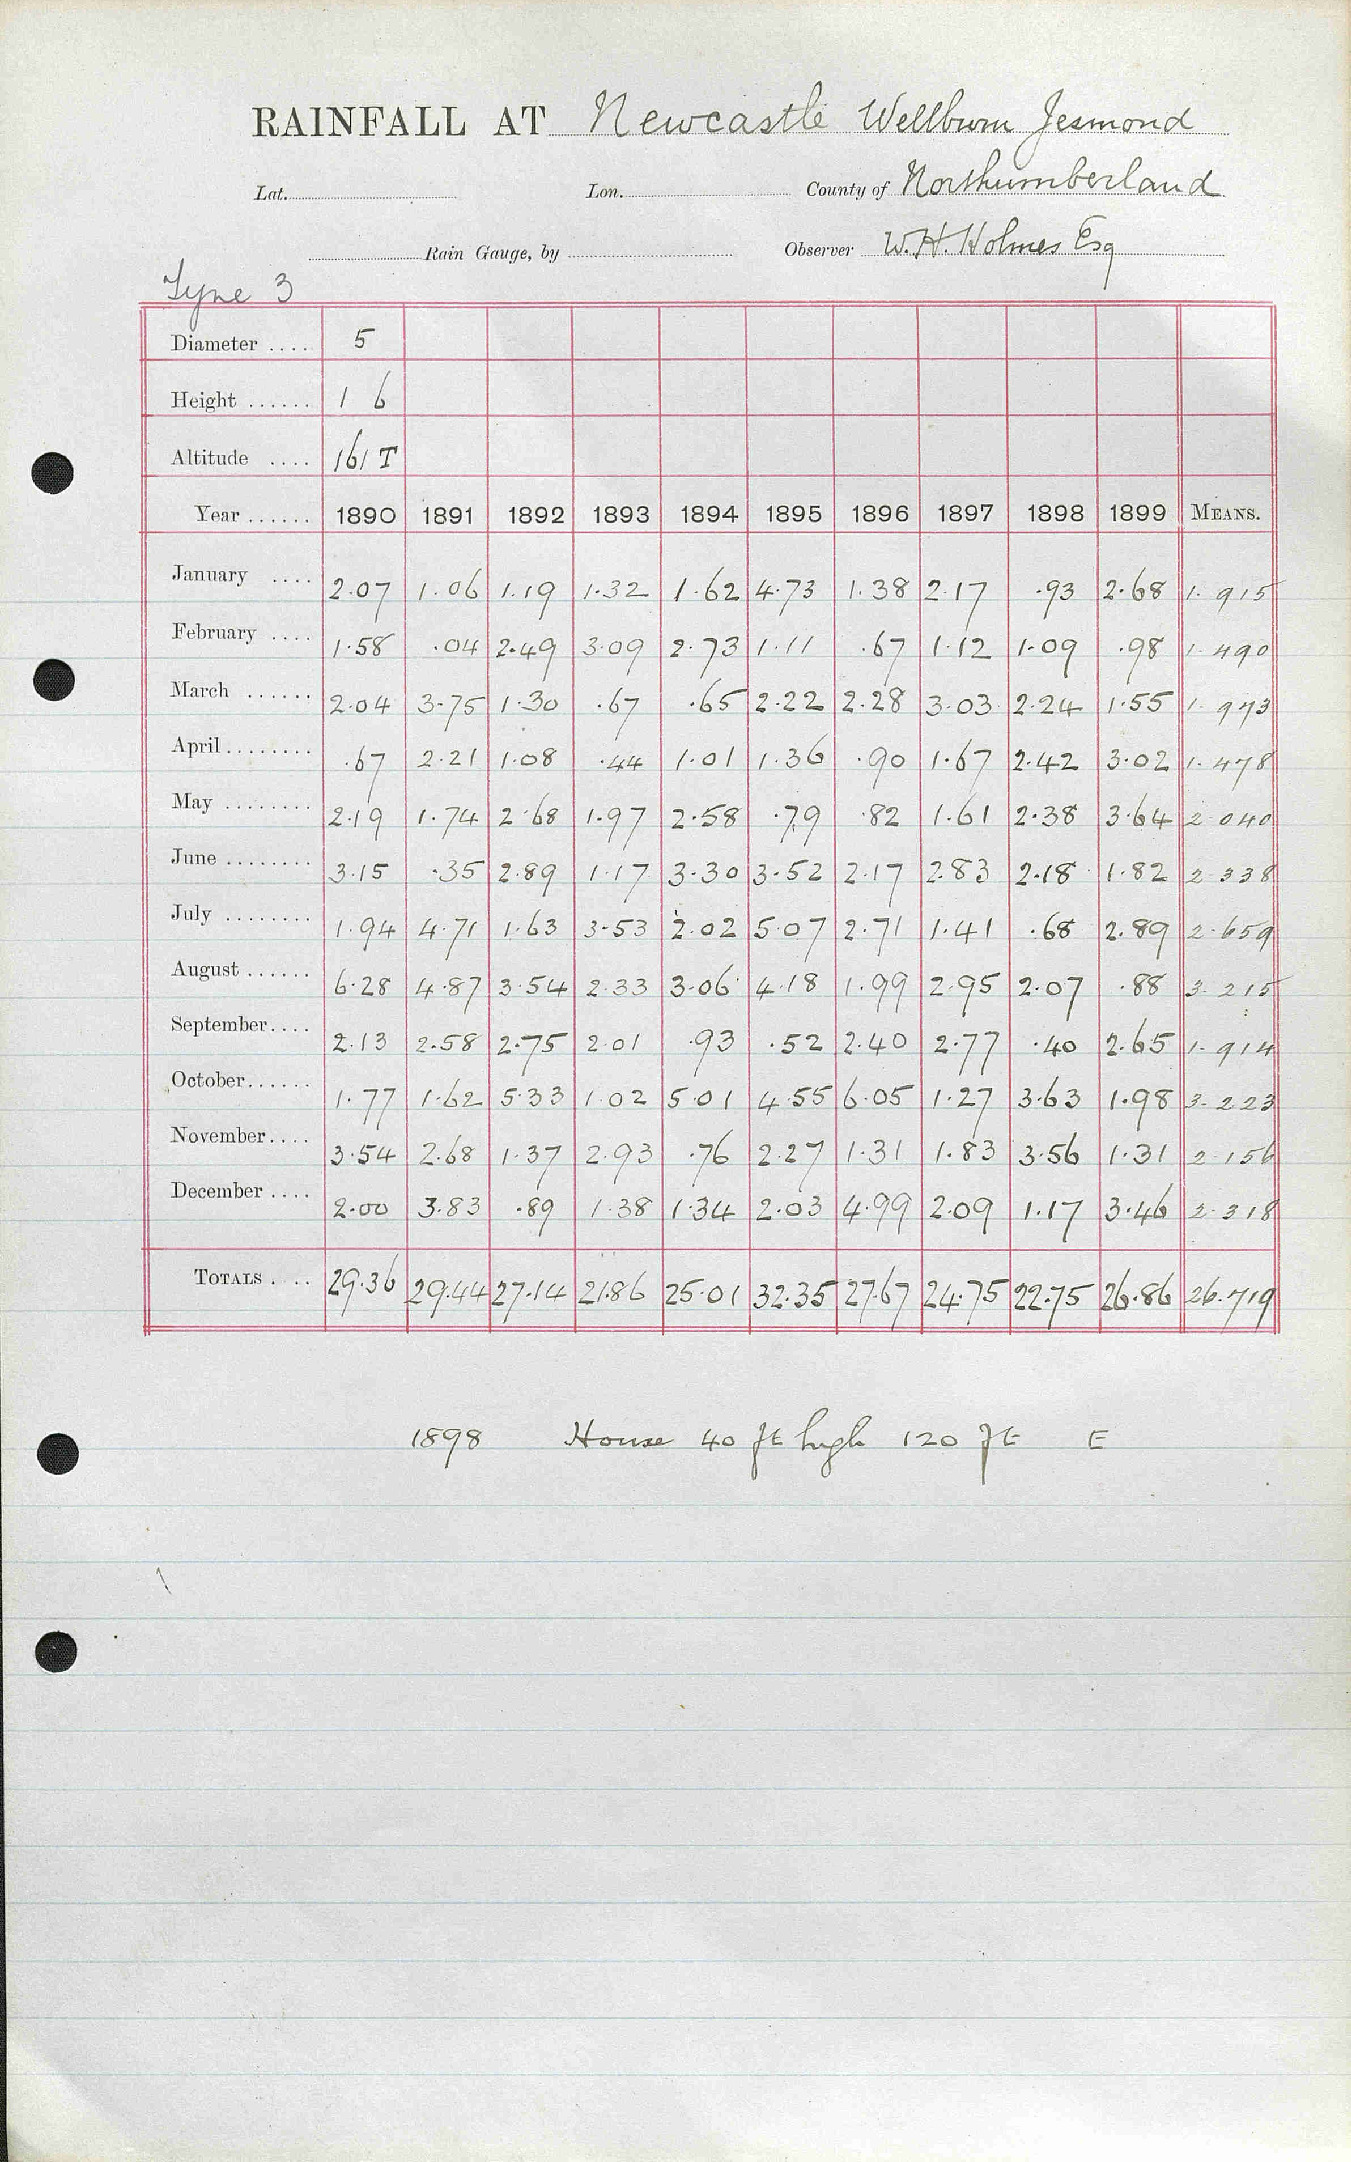 RAINFALL AT Newcastle Wellburn Jesmond
Lat. Lon. County of Northumberland
Rain Gauge, by Observer W. H. Holmes Esq
Tyne 3
Diameter .... 5
Height ...... 1 6
Altitude .... 161 T
Year ...... 1890 1891 1892 1893 1894 1895 1896 1897 1898 1899 MEANS.
January .... 2.07 1.06 1.19 1.32 1.62 4.73 1.38 2.17 .93 2.68 1.915
February .... 1.58 .04 2.49 3.09 2.73 1.11 .67 1.12 1.09 .98 1.490
March ...... 2.04 3.75 1.30 .67 .65 2.22 2.28 3.03 2.24 1.55 1.973
April ........ .67 2.21 1.08 .44 1.01 1.36 .90 1.67 2.42 3.02 1.478
May ........ 2.19 1.74 2.68 1.97 2.58 .79 .82 1.61 2.38 3.64 2.040
June ........ 3.15 .35 2.89 1.17 3.30 3.52 2.17 2.83 2.18 1.82 2.338
July ........ 1.94 4.71 1.63 3.53 2.02 5.07 2.71 1.41 .68 2.89 2.659
August ...... 6.28 4.87 3.54 2.33 3.06 4.18 1.99 2.95 2.07 .88 3.215
September .... 2.13 2.58 2.75 2.01 .93 .52 2.40 2.77 .40 2.65 1.914
October ...... 1.77 1.62 5.33 1.02 5.01 4.55 6.05 1.27 3.63 1.98 3.223
November .... 3.54 2.68 1.37 2.93 .76 2.27 1.31 1.83 3.56 1.31 2.156
December .... 2.00 3.83 .89 1.38 1.34 2.03 4.99 2.09 1.17 3.46 2.318
TOTALS .... 29.36 29.44 27.14 21.86 25.01 32.35 27.67 24.75 22.75 26.86 26.719
1898 House 40 ft high 120 ft E